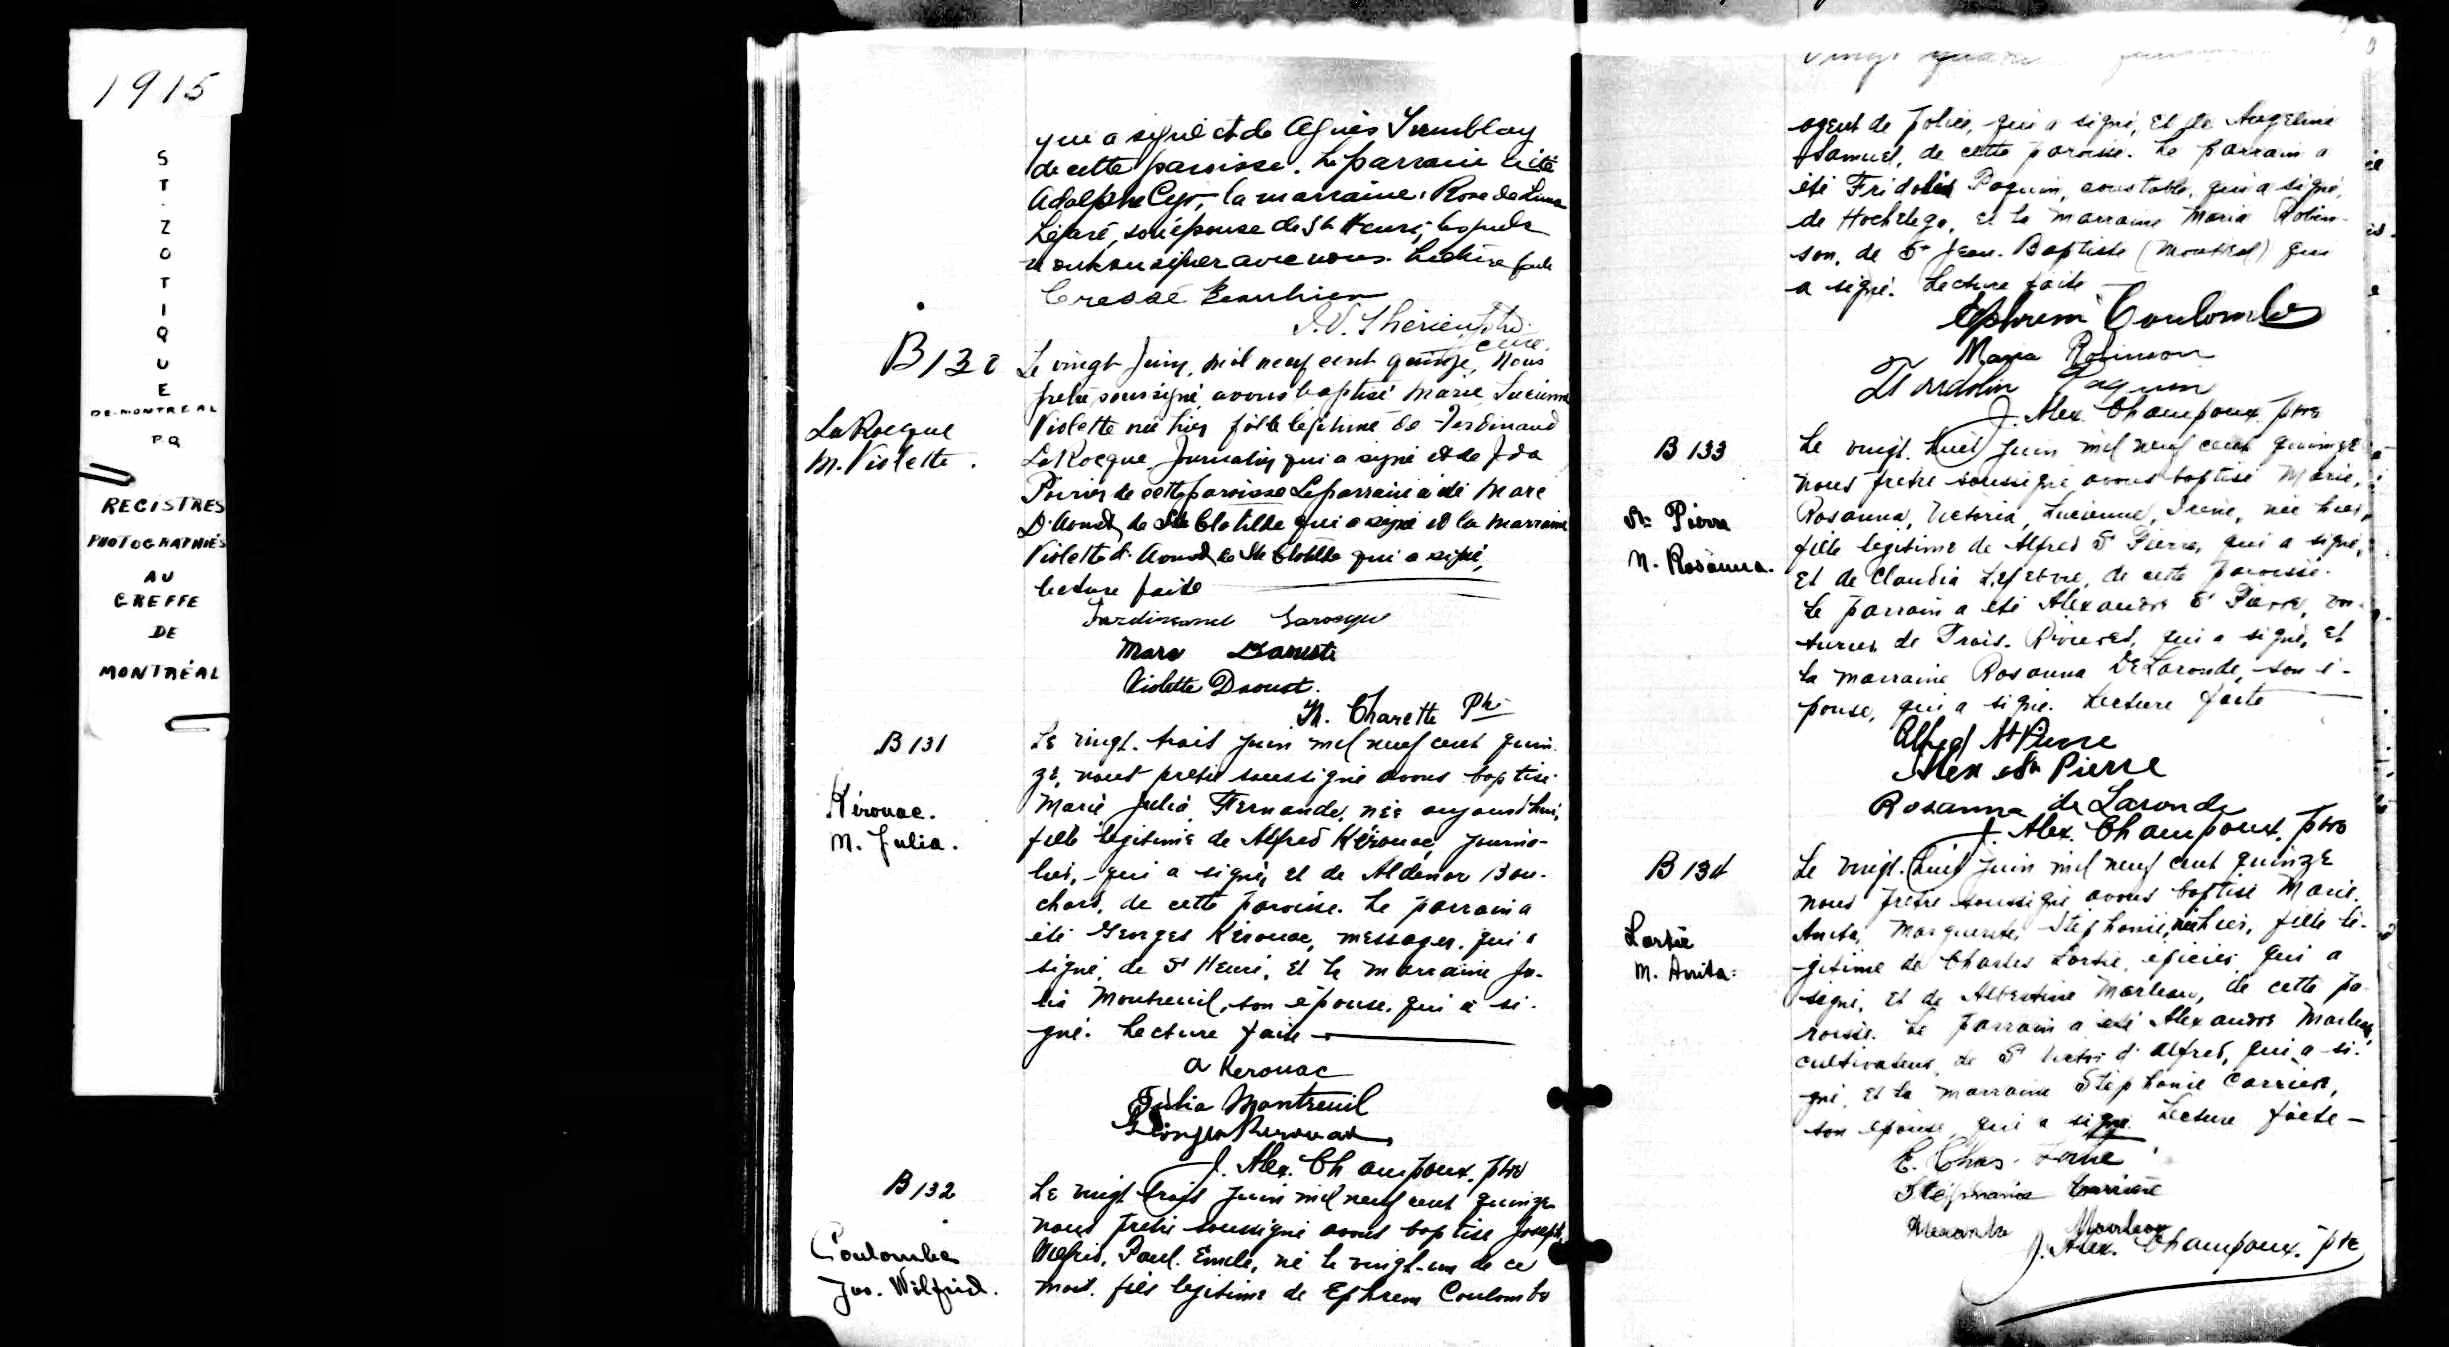 1915
ST. ZOTIQUE
DE MONTREAL
P Q
REGISTRES
PHOTOGRAPHIÉS
AU
GREFFE
DE
MONTRÉAL
qui a signé et de Agnès Tremblay
de cette paroisse. Le parrain a été
Adolphe Cyr, la marraine Rose de Lima
Légaré, son épouse de St Henri, lesquels
ont su signer avec nous. Lecture faite
J. V. Therien Ptre
curé.
B 130
LaRocque
M. Violette.
Le vingt Juin, mil neuf cent quinze, Nous
pretre soussigné avons baptisé Marie Lucienne
Violette née hier fille légitime de Ferdinand
LaRocque Journalier qui a signé et de Ida
Poirier de cette paroisse Le parrain a été Marc
D'Aoust de Ste Clotilde qui a signé et la marraine
Violette d'Aoust de Ste Clotilde qui a signé,
lecture faite
Ferdinand Larocque
Marc Daoust
Violette Daoust.
Charette Ptr
B 131
Kérouac.
M. Julia.
Le vingt-trois juin mil neuf cent quin-
ze, nous pretre soussigné avons baptisé
Marie Julia, Fernande, née aujourd'hui,
fille légitime de Alfred Kérouac, journa-
lier, qui a signé, et de Aldénor Bou-
chard, de cette paroisse. Le parrain a
été Georges Kérouac, messager, qui a
signé, de St Henri, et la marraine Ju-
lia Montreuil, son épouse, qui a si-
gné. Lecture faite
A Kerouac
Julia Montreuil
Georges Kerouac
J. Alex. Champoux. ptre
B 132
Coulombe
Jos. Wilfrid.
Le vingt trois juin mil neuf cent quinze
nous pretre soussigné avons baptisé Joseph,
Wilfrid, Paul-Emile, né le vingt-un de ce
mois, fils légitime de Ephrem Coulombe
agent de police, qui a signé, et de Angelina
Samuel, de cette paroisse. Le parrain a
été Fridolin Paquin, constable, qui a signé,
de Hochelaga, et la marraine Maria Robin-
son, de St Jean-Baptiste (Montréal) qui
a signé. Lecture faite
Ephrem Coulombe
Maria Robinson
Paquin
J. Alex. Champoux. ptre
B 133
St Pierre
M. Rosanna.
Le vingt-huit juin mil neuf cent quinze
nous pretre soussigné avons baptisé Marie,
Rosanna, Victoria, Lucienne, Irène, née hier,
fille légitime de Alfred St Pierre, qui a signé,
et de Claudia Lefebvre, de cette paroisse.
Le parrain a été Alexandre St Pierre, voi-
turier de Trois-Rivières, qui a signé, et
la marraine Rosanna DeLaronde, son é-
pouse, qui a signé. Lecture faite
Alfred St Pierre
Alex St Pierre
Rosanna de Laronde
J. Alex. Champoux. ptre
B 134
Lortie
M. Anita.
Le vingt-huit juin mil neuf cent quinze
nous pretre soussigné avons baptisé Marie,
Anita, Marguerite, Stéphanie, née hier, fille lé-
gitime de Charles Lortie, épicier, qui a
signé, et de Albertine Marleau, de cette pa-
roisse. Le parrain a été Alexandre Marleau,
cultivateur, de St Victor d'Alfred, qui a si-
gné, et la marraine Stéphanie Carrière,
son épouse, qui a signé. Lecture faite
E. Chas. Lortie
Stéphanie Carrière
Alexandre Marleau
J. Alex. Champoux. ptre